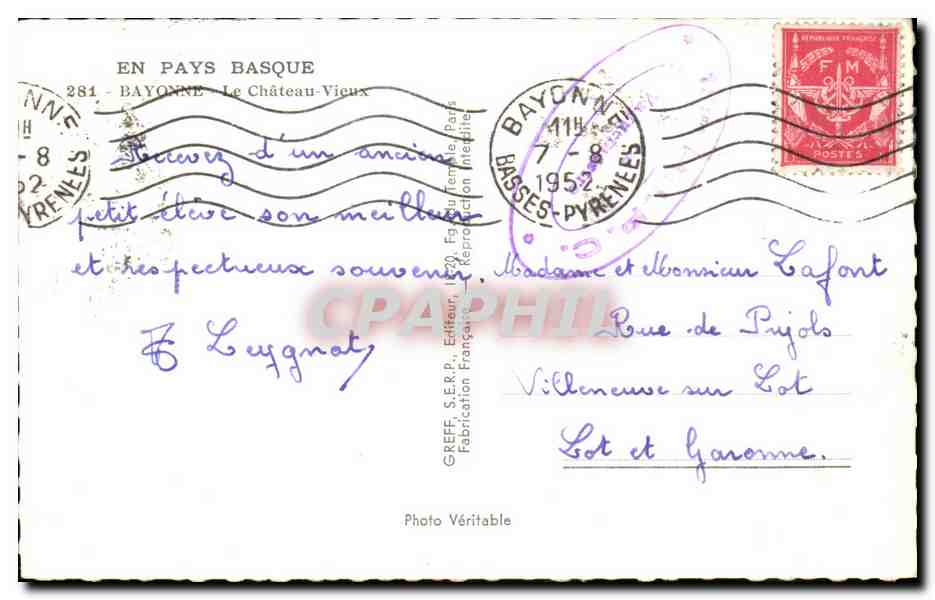 EN PAYS BASQUE
281 - BAYONNE - Le Château-Vieux
Recevez d'un ancien
petit élève son meilleur
et respectueux souvenir.
Leygnat
GREFF, S.E.R.P., Editeur, Fg. du Temple, Paris
Fabrication Française - Reproduction Interdite
BAYONNE
11H
7 - 8
1952
BASSES-PYRENEES
YONNE
H
- 8
52
YRENEES
RÉPUBLIQUE FRANÇAISE
F M
POSTES
Madame et Monsieur Lafont
Rue de Pujols
Villeneuve sur Lot
Lot et Garonne.
Photo Véritable
CPAPHIL